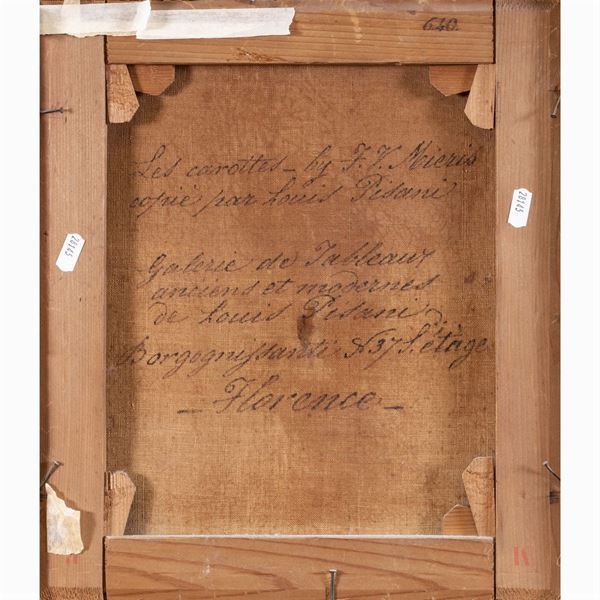 640.
Les carottes - by F. V. Mieris
copié par Louis Pisani
28145
28145
Galerie de Tableaux
anciens et modernes
de Louis Pisani
Borgognissanti N 37 étage
- Florence -
K